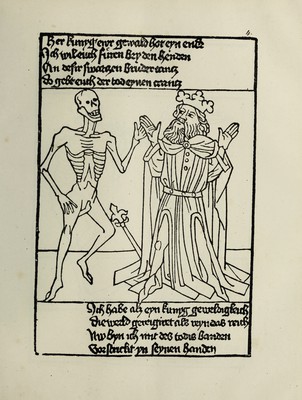 4
Her kunig ewr gewald hot eyn ende
Ich wil euch furen bey den henden
An deser swarczen bruder tancz
do gebt euch der tod eynen crancz
Ich habe als eyn kunig geweldigkleich
Die werld gereigiret als reyn das reich
Nw byn ich mit des todis banden
Vorstrickt yn seynen handen